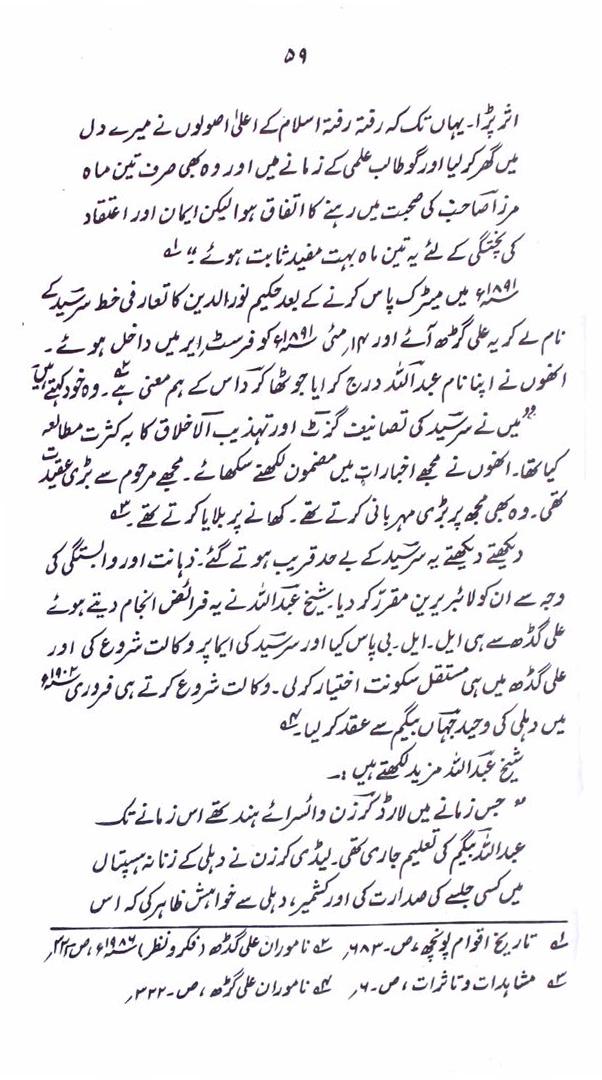 ۵۹
اثر پڑا۔ یہاں تک کہ رفتہ رفتہ اسلام کے اعلیٰ اصولوں نے میرے دل
میں گھر کر لیا اور گو طالب علمی کے زمانے میں اور وہ بھی صرف تین ماہ
مرزا صاحب کی صحبت میں رہنے کا اتفاق ہوا لیکن ایمان اور اعتقاد
کی پختگی کے لئے یہ تین ماہ بہت مفید ثابت ہوئے"۔ ۱؎
۱۸۹۱ء میں میٹرک پاس کرنے کے بعد حکیم نور الدین کا تعارفی خط سرسید کے
نام لے کر یہ علی گڑھ آئے اور ۱۴؍ مئی ۱۸۹۱ء کو فرسٹ ایر میں داخل ہوئے۔
انھوں نے اپنا نام عبداللہ درج کرایا جو ٹھاکر داس کے ہم معنی ہے۲؎۔ وہ خود کہتے ہیں
"میں نے سرسید کی تصانیف گزٹ اور تہذیب الاخلاق کا بہ کثرت مطالعہ
کیا تھا۔ انھوں نے مجھے اخبارات میں مضمون لکھنے سکھائے۔ مجھے مرحوم سے بڑی عقیدت
تھی۔ وہ بھی مجھ پر بڑی مہربانی کرتے تھے۔ کھانے پر بلایا کرتے تھے۔ ۳؎
دیکھتے دیکھتے یہ سرسید کے بے حد قریب ہوتے گئے۔ ذہانت اور وابستگی کی
وجہ سے ان کو لائبریرین مقرر کر دیا۔ شیخ عبداللہ نے یہ فرائض انجام دیتے ہوئے
علی گڈھ سے ہی ایل۔ ایل۔ بی پاس کیا اور سرسید کی ایما پر وکالت شروع کی اور
علی گڈھ میں ہی مستقل سکونت اختیار کر لی۔ وکالت شروع کرتے ہی فروری ۱۹۰۲ء
میں دہلی کی وحید جہاں بیگم سے عقد کر لیا۔ ۴؎
شیخ عبداللہ مزید لکھتے ہیں :۔
"جس زمانے میں لارڈ کرزن وائسرائے ہند تھے اس زمانے تک
عبداللہ بیگم کی تعلیم جاری تھی۔ لیڈی کرزن نے دہلی کے زنانہ ہسپتال
میں کسی جلسے کی صدارت کی اور کشمیر، دہلی سے خواہش ظاہر کی کہ اس
۱؎ تاریخ اقوام پونچھ، ص۔ ۶۸۳، ۲؎ ناموران علی گڈھ (فکر و نظر) ۱۹۸۶ء، ص
۳؎ مشاہدات و تاثرات، ص۔ ۶، ۴؎ ناموران علی گڑھ، ص۔ ۳۲۲،